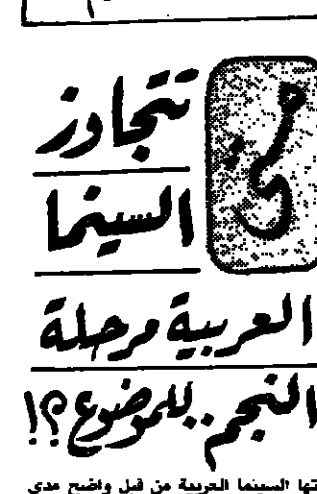 متى
تتجاوز
السينما
العربية مرحلة
النجم.. للموضوع؟!
تها السينما العربية من قبل واضح مدى